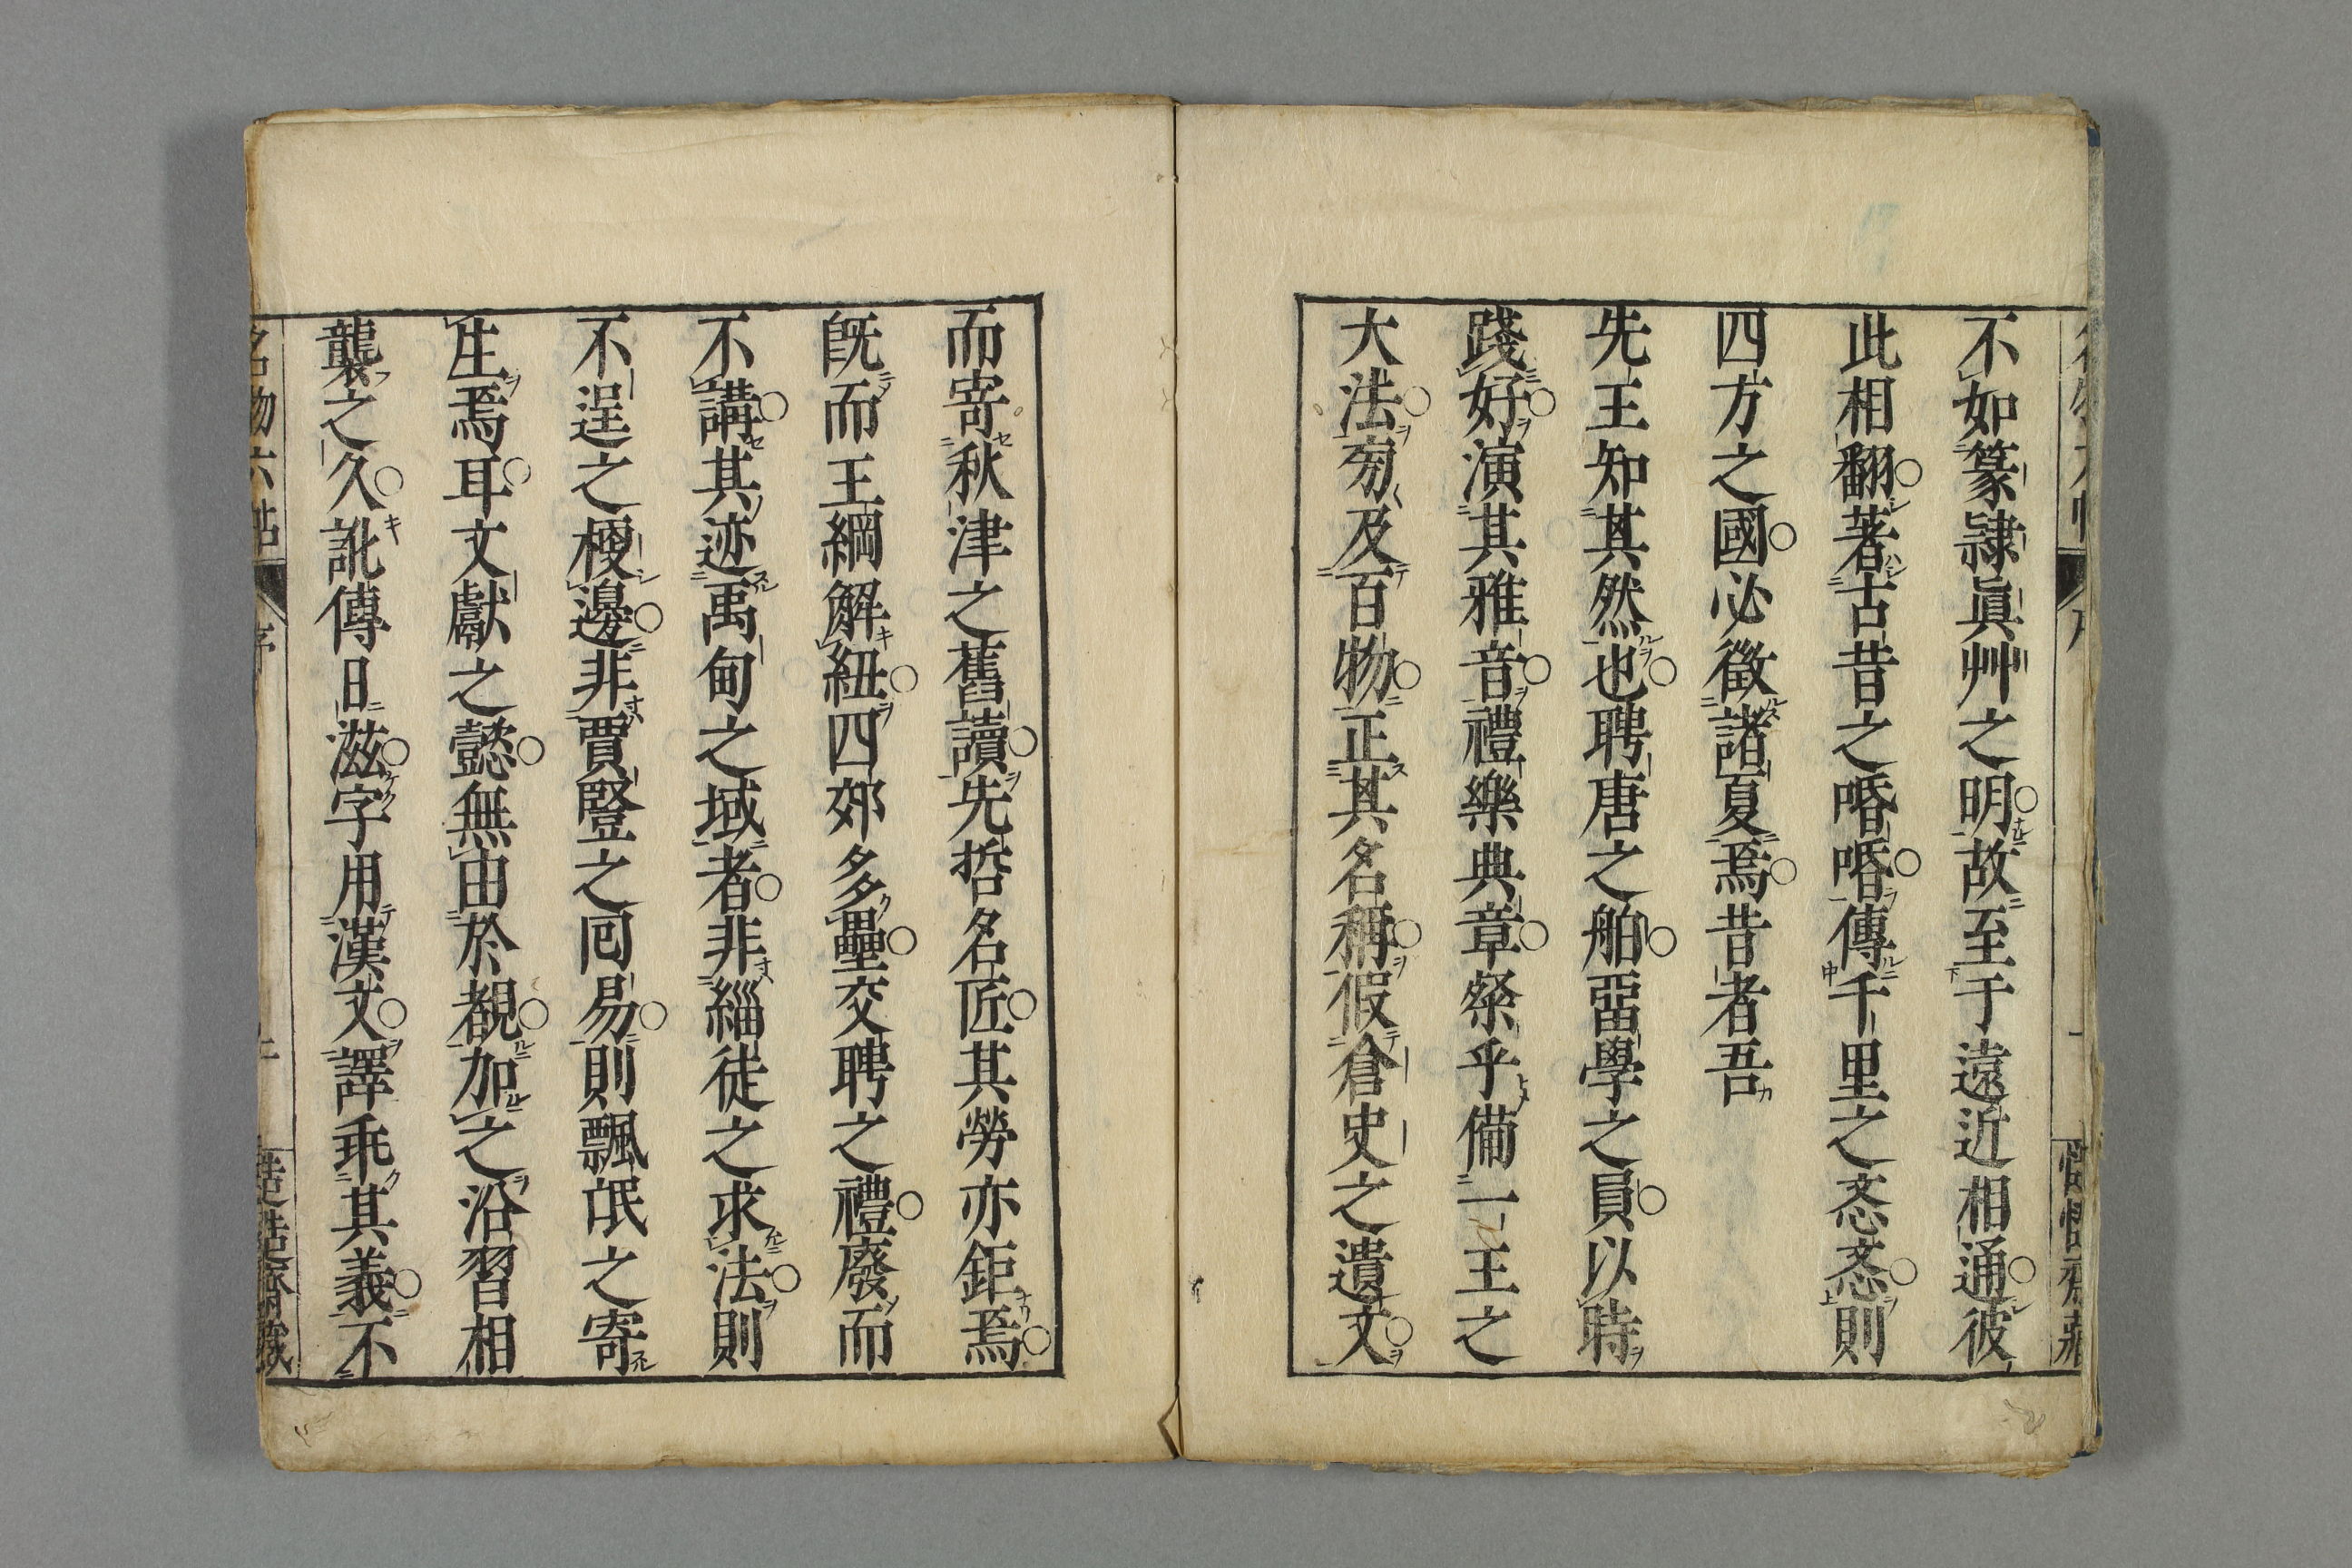 不如篆隷眞艸之明故至于遠近相通彼
此相翻著古昔之㖧㖧傳千里之忞忞則
四方之國必徵諸夏焉昔者吾
先王知其然也聘唐之舶霫學之員以時
踐好演其雅音禮樂典章粲乎備一王之
大法旁及百物正其名稱假倉史之遺文
而寄秋津之舊讀先哲名匠其勞亦鉅焉
旣而王綱解紐四郊多壘交聘之禮廢而
不講其迹禹甸之域者非緇徒之求法則
不逞之梗邊非賈豎之回易則飄氓之寄
生焉耳文獻之懿無由於覩加之沿習相
襲之久訛傳日滋字用漢文譯乖其義不
名物六帖
序
二